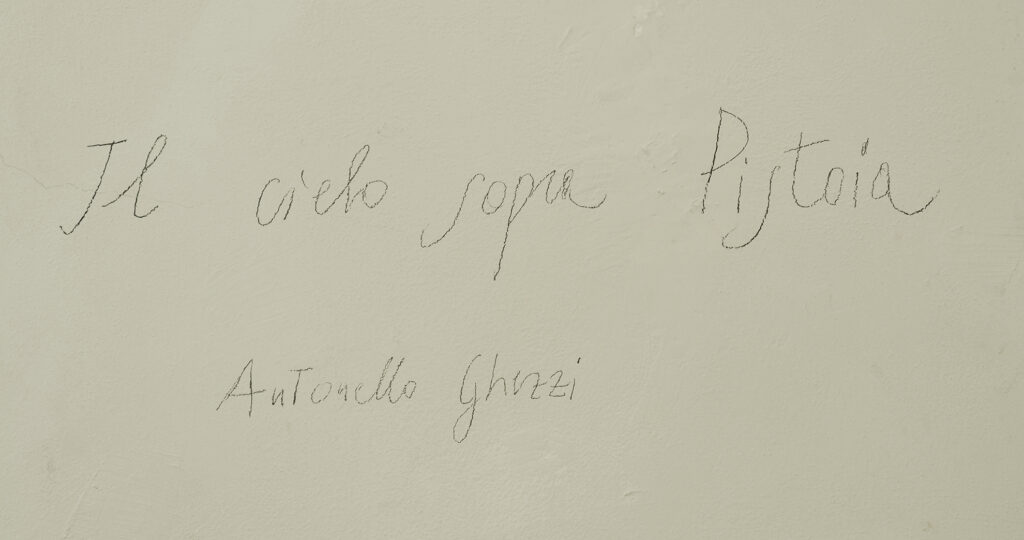 Il cielo sopra Pistoia
Antonello Ghezzi